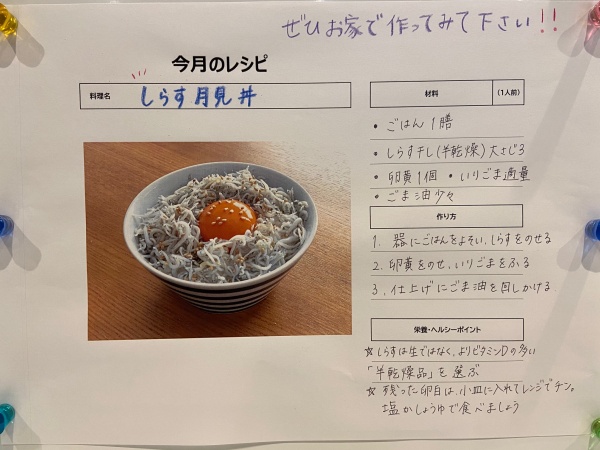 ぜひお家で作ってみて下さい!!
今月のレシピ
料理名 しらす月見丼
材料 (1人前)
・ごはん1膳
・しらす干し(半乾燥)大さじ3
・卵黄1個 ・いりごま適量
・ごま油少々
作り方
1. 器にごはんをよそい、しらすをのせる
2. 卵黄をのせ、いりごまをふる
3. 仕上げにごま油を回しかける
栄養・ヘルシーポイント
☆しらすは生ではなく、よりビタミンDの多い
「半乾燥品」を選ぶ
☆残った卵白は、小皿に入れてレンジでチン。
塩かしょうゆで食べましょう